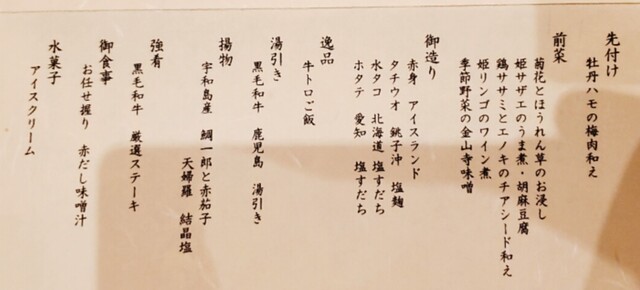 先付け
牡丹ハモの梅肉和え
前菜
菊花とほうれん草のお浸し
姫サザエのうま煮・胡麻豆腐
鶏ササミとエノキのチアシード和え
姫リンゴのワイン煮
季節野菜の金山寺味噌
御造り
赤身 アイスランド
タチウオ 銚子沖 塩麹
水タコ 北海道 塩すだち
ホタテ 愛知 塩すだち
逸品
牛トロご飯
湯引き
黒毛和牛 鹿児島 湯引き
揚物
宇和島産 鯛一郎と赤茄子
天婦羅 結晶塩
強肴
黒毛和牛 厳選ステーキ
御食事
お任せ握り 赤だし味噌汁
水菓子
アイスクリーム